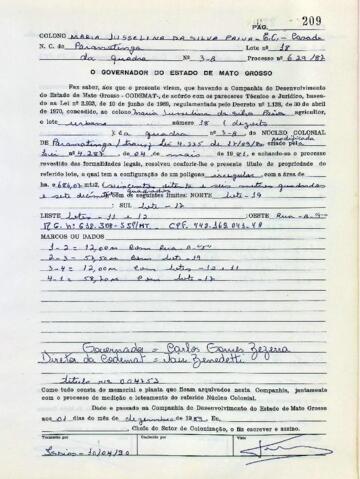 PÁG. 209
COLONO MARIA JUSSELINA DA SILVA PAIVA - E.C. - Casada
N. C. de Paranatinga Lote nº 18
da Quadra Nº 3-B Processo nº 629/87
O GOVERNADOR DO ESTADO DE MATO GROSSO
Faz saber, aos que o presente virem, que havendo a Companhia de Desenvolvimento
do Estado de Mato Grosso - CODEMAT-, de acôrdo com os pareceres Técnico e Jurídico, basea-
do na Lei nº 2.903, de 10 de junho de 1969, regulamentada pelo Decreto N. 1.138, de 30 de abril
de 1970, concedido, ao colono Maria Jusselina da Silva Paiva agricultor,
o lote urbano número 18 (dezoito
) da quadra nº 3-B do NÚCLEO COLONIAL
de Paranatinga criado pela
Lei nº 4.287 de 04 de maio de 1981, e achando-se o processo
revestido das formalidades legais, resolveu conferir-lhe o presente título de propriedade do
referido lote, o qual tem a configuração de um polígono irregular com a área de
ha. 686,07 mt2. (seiscentos oitenta e seis metros quadrados
e sete com os seguintes limites: NORTE Lote - 19
: SUL Lote - 17
LESTE Lotes - 11 e 12 OESTE Rua
MARCOS OU DATADOS
1-2 = 12,00m com Rua
2-3 = com Lote - 19
3-4 = 12,00m com Lotes - 12 e 11
4-1 = com Lote - 17
Governador = Carlos Gomes Bezerra
Diretor da Codemat = Jair Benedetti
título nº 004753
Como tudo consta do memorial e planta que ficam arquivados nesta Companhia, juntamente
com o processo de medição e loteamento do referido Núcleo Colonial.
Dado e passado na Companhia do Desenvolvimento do Estado de Mato Grosso
aos 01 dias do mês de dezembro de 1989 Eu,
, Chefe do Setor de Colonização, o fiz escrever e assino.
Transcrito por Conferido por Visto
10/04/90